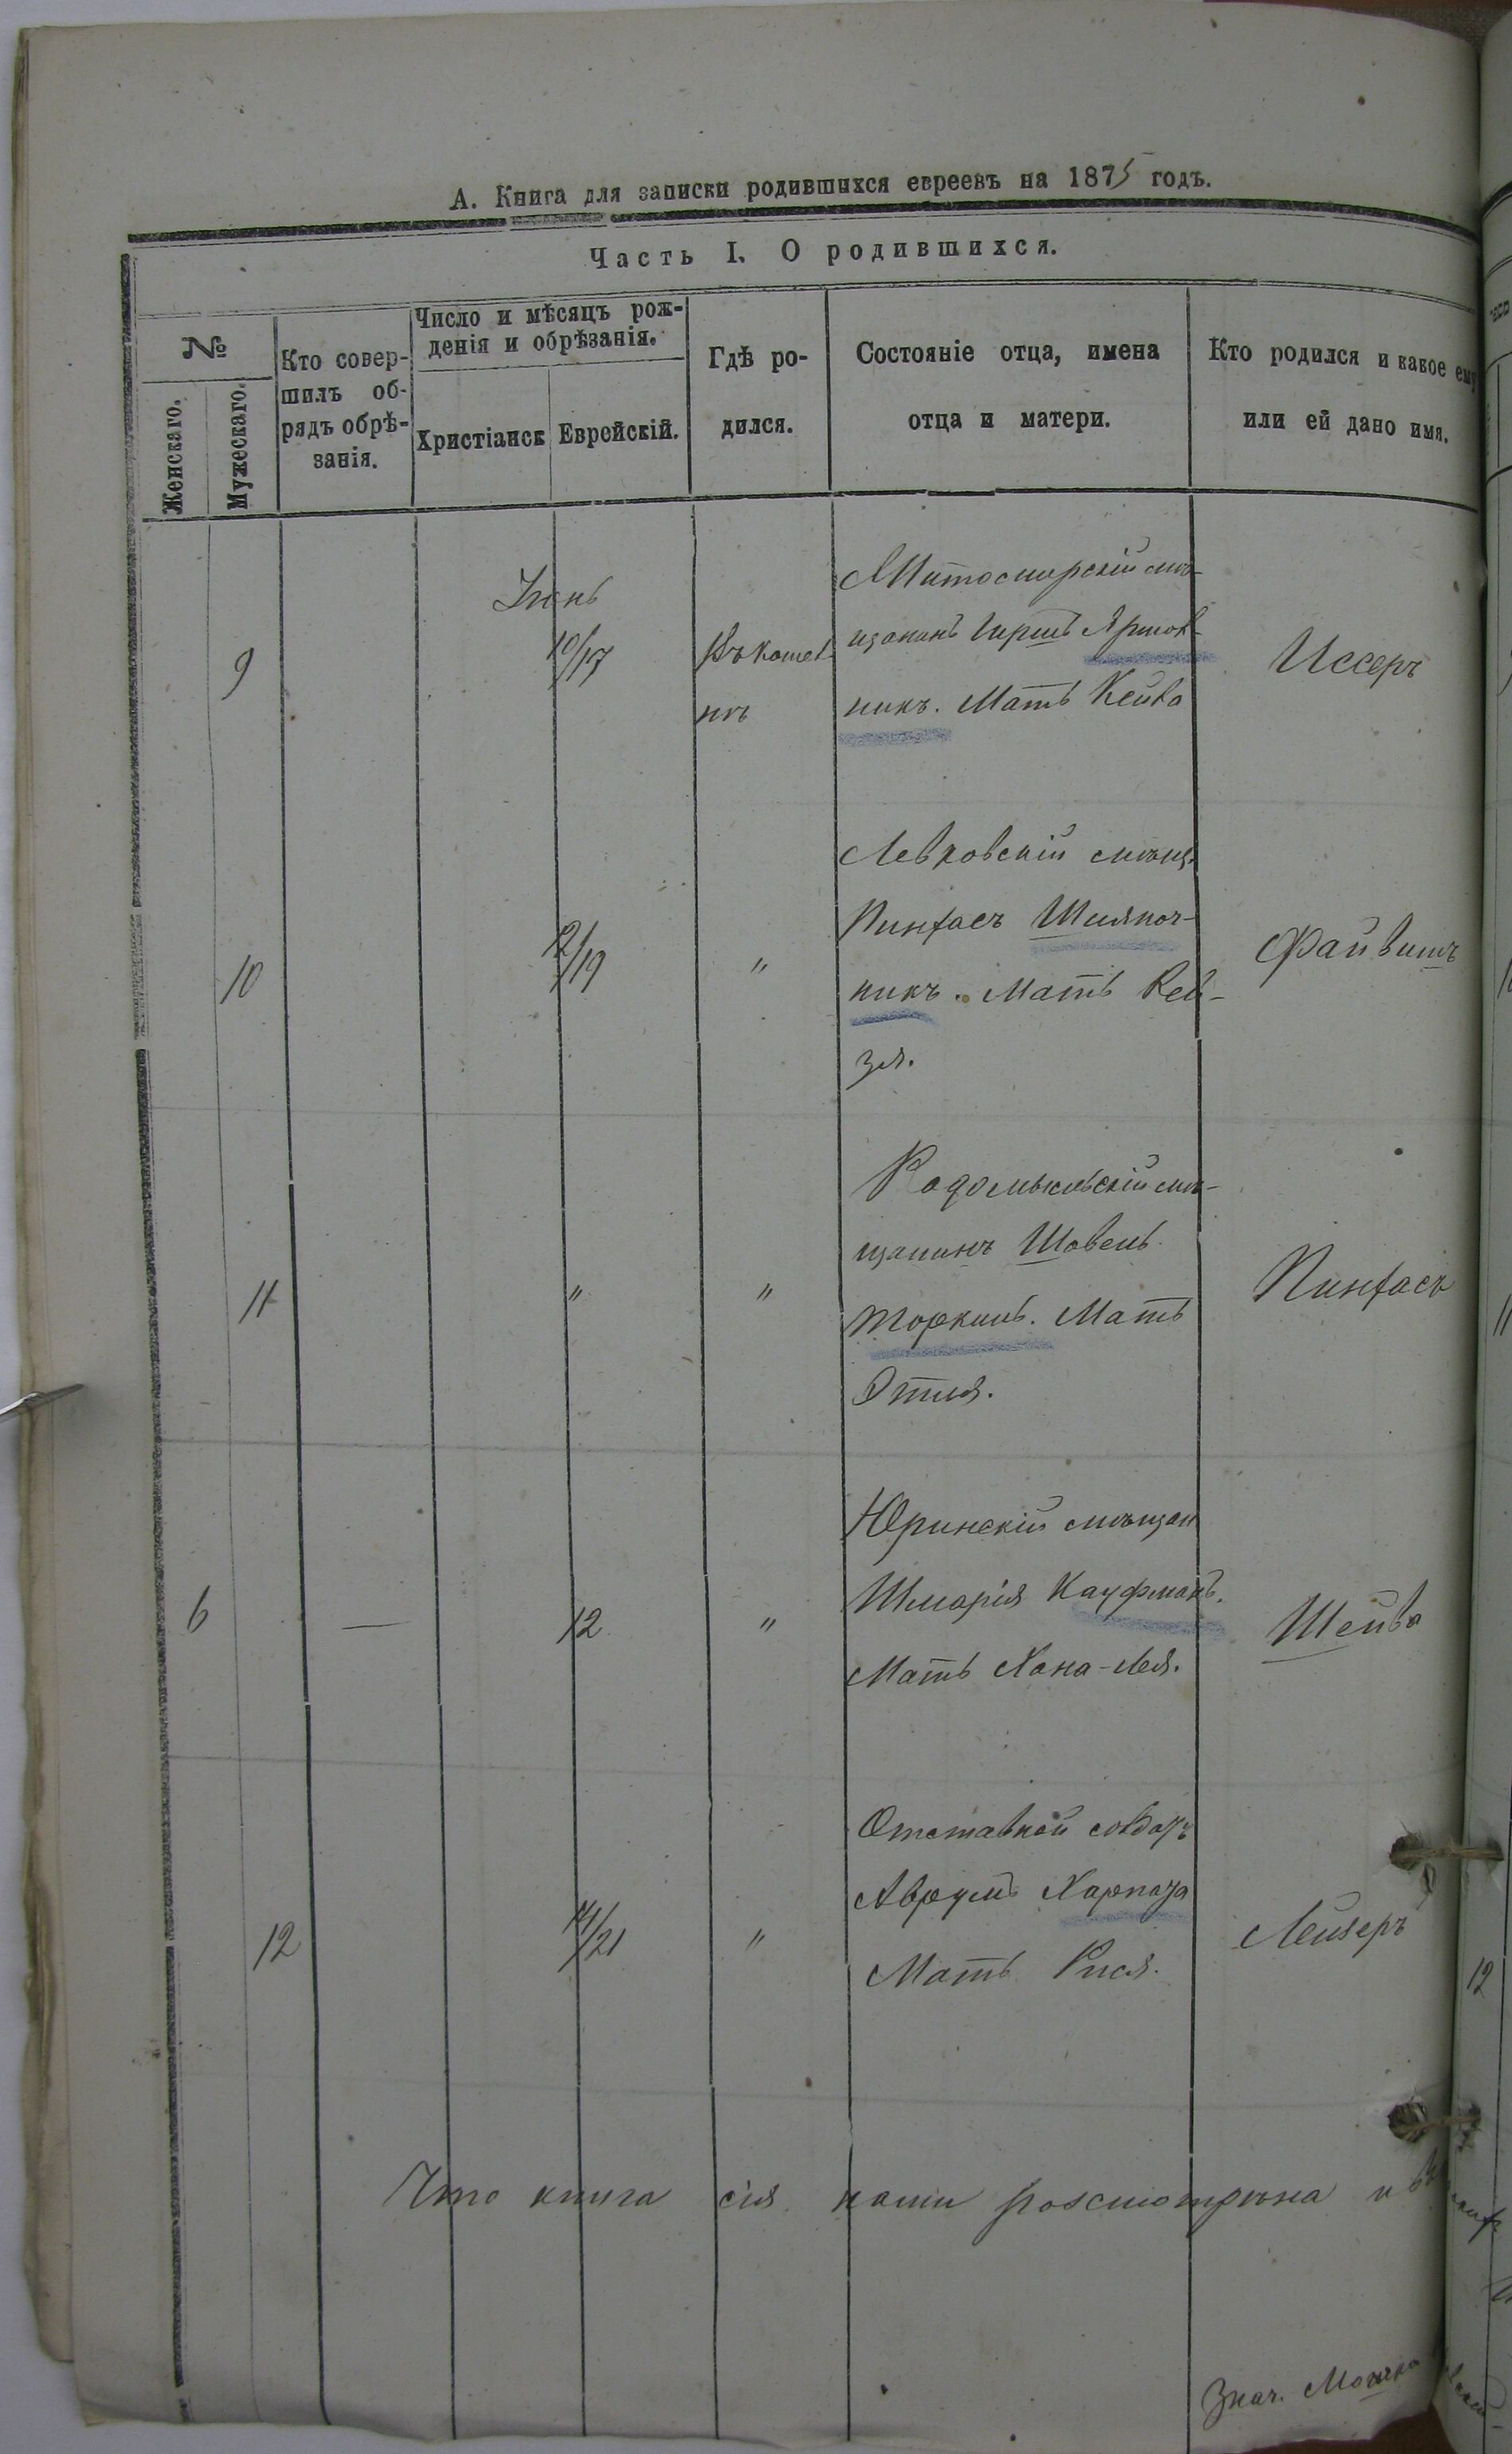 А. Книга для записки родившихся евреевъ на 1875 годъ.
Часть I. О родившихся.
№
Женскаго.
Мужескаго.
Кто совер-
шилъ об-
рядъ обрѣ-
занія.
Число и мѣсяцъ рож-
денія и обрѣзанія.
Христіанск
Еврейскій.
Гдѣ ро-
дился.
Состояніе отца, имена
отца и матери.
Кто родился и какое ему
или ей дано имя.
Іюнь
9
10/17
мѣ-
щанинъ Гиршъ
никъ. Мать Кейла
Иссеръ
10
12/19
"
Левковскій мѣщ.
Пинхасъ Шляпоч-
никъ. Мать Рей-
зя.
Файвишъ
11
"
"
Радомысльскій мѣ-
щанинъ Шовель
Торкинъ. Мать
Этля.
Пинхасъ
6
—
12
"
Юринскій мѣщан
Шмарія Кауфманъ.
Мать Хана-Лея.
Шейва
12
14/21
"
Отставной солдатъ
Аврумъ
Мать Рися.
Лейзеръ
Что книга сія нами разсмотрѣна и
12